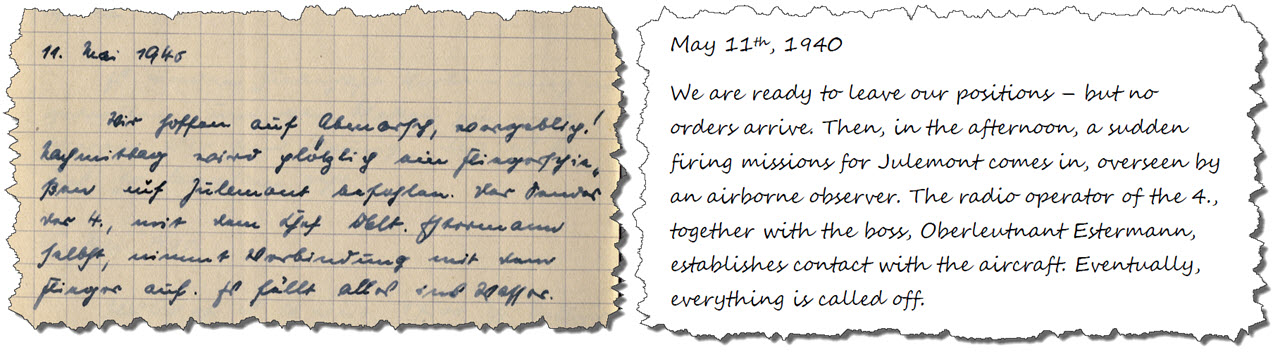 11. Mai 1940
Wir hoffen auf Abmarsch, vergeblich!
Nachmittag wird plötzlich ein Fliegerschie„
ßen auf Julemont befohlen. Der Sender
der 4., mit dem Chef Oblt. Estermann
selbst, nimmt Verbindung mit dem
Flieger auf. Es fällt alles ins Wasser.
May 11th, 1940
We are ready to leave our positions – but no
orders arrive. Then, in the afternoon, a sudden
firing missions for Julemont comes in, overseen by
an airborne observer. The radio operator of the 4.,
together with the boss, Oberleutnant Estermann,
establishes contact with the aircraft. Eventually,
everything is called off.